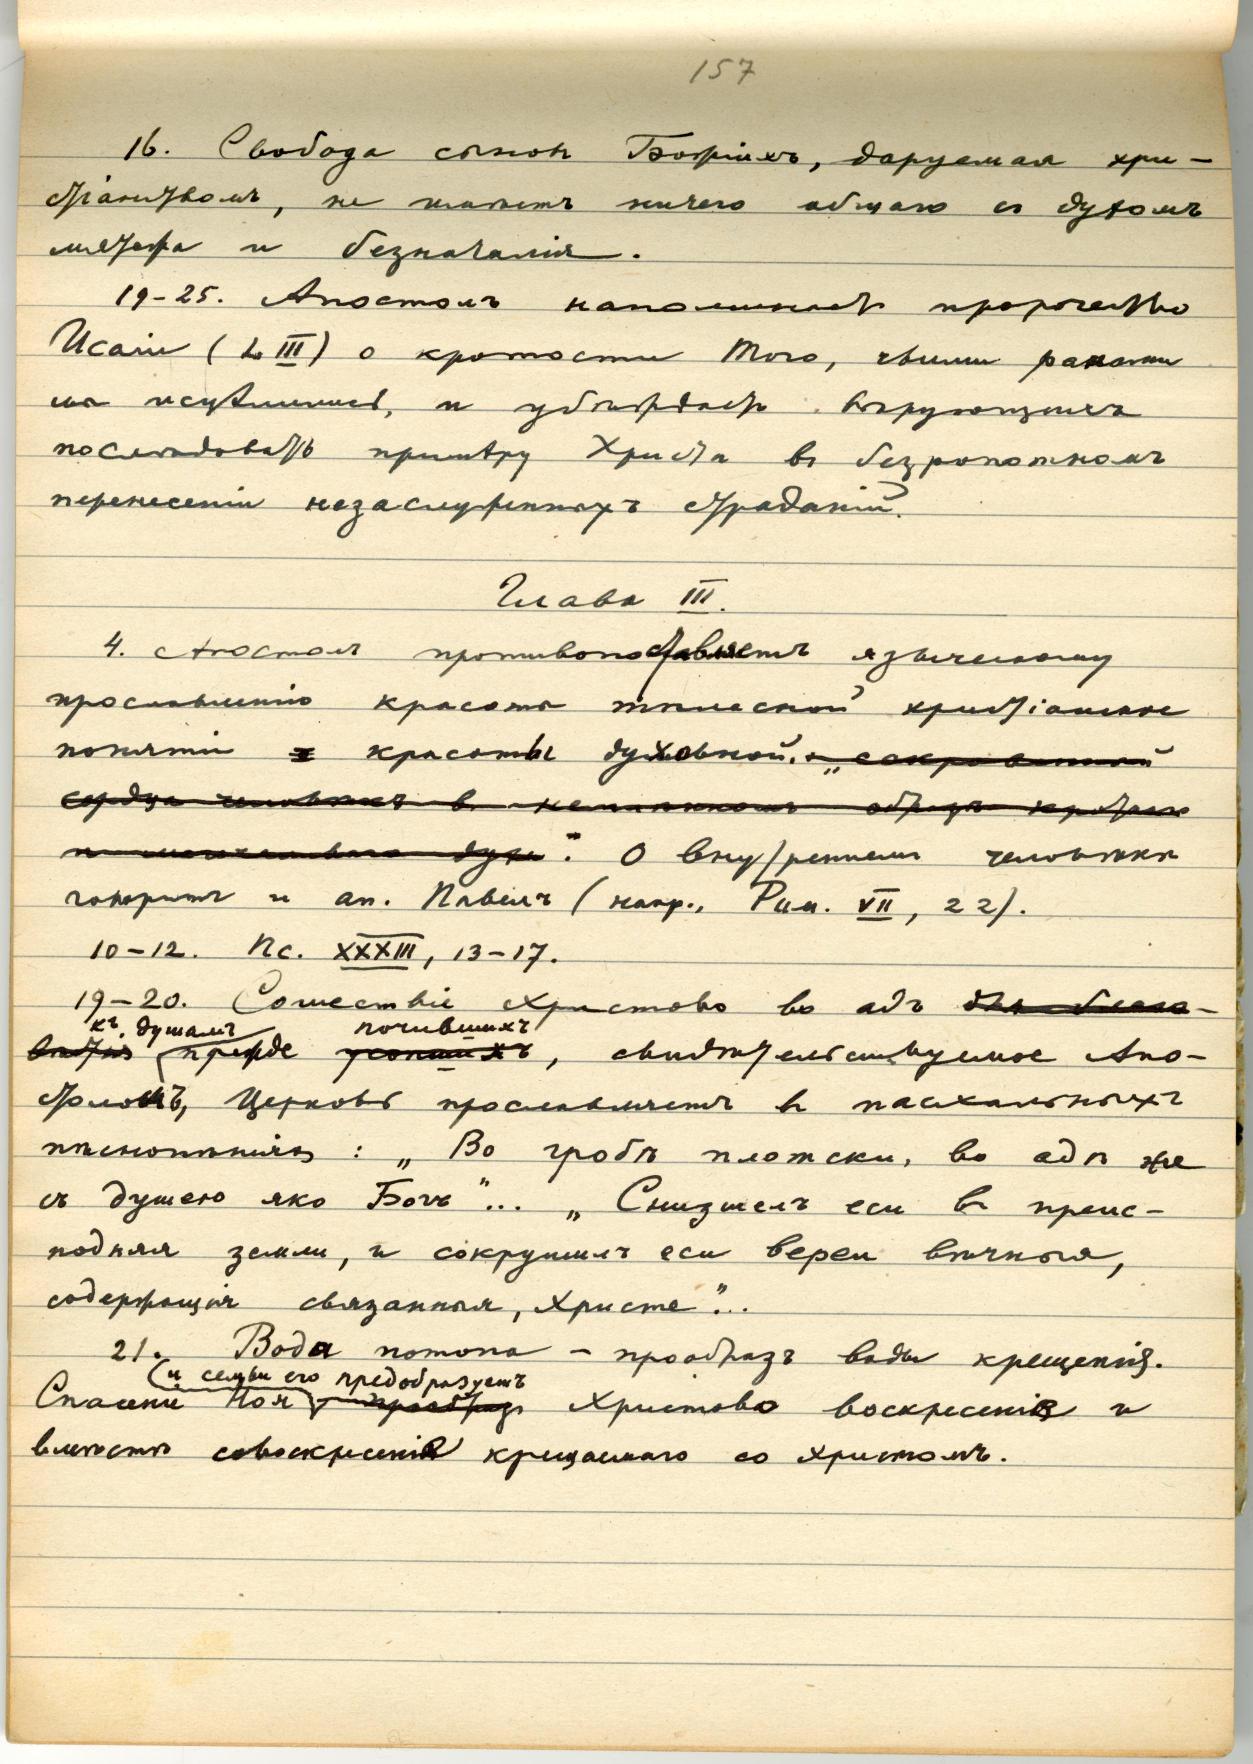 157
16. Свобода сыновъ Божіихъ, даруемая хри-
стіанствомъ, не имѣетъ ничего общаго съ духомъ
мятежа и безначалія.
19-25. Апостолъ напоминаетъ пророчество
Исаіи (LIII) о кротости Того, чьими ранами
мы исцѣлились, и убѣждаетъ вѣрующихъ
послѣдовать примѣру Христа въ безропотномъ
перенесеніи незаслуженныхъ страданій.
Глава III.
4. Апостолъ противопоставляетъ языческому
прославленію красоты тѣлесной христіанское
понятіе красоты духовной. „сокровенный
сердца человѣкъ въ нетлѣнномъ образѣ кроткаго
и молчаливаго духа“. О внутреннемъ человѣкѣ
говоритъ и ап. Павелъ (напр., Рим. VII, 22).
10-12. Пс. XXXIII, 13-17.
19-20. Сошествіе Христово во адъ для благо-
къ душамъ почившихъ
вѣстія прежде усопшихъ, свидѣтельствуемое Апо-
столомъ, Церковь прославляетъ въ пасхальныхъ
пѣснопѣніяхъ: „Во гробѣ плотски, во адѣ же
съ душею яко Богъ“... „Снизшелъ еси въ преис-
подняя земли, и сокрушилъ еси вереи вѣчныя,
содержащія связанныя, Христе“...
21. Вода потопа - прообразъ воды крещенія.
и семьи его предобразуетъ
Спасеніе Ноя - прообразъ Христово воскресеніе и
вмѣстѣ совоскресеніе крещаемаго со Христомъ.